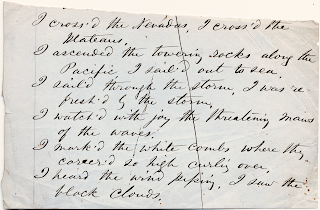 I cross'd the Nevadas, I cross'd the
Plateaus,
I ascended the towering rocks along the
Pacific I sail'd out to sea,
I sail'd through the storm, I was re-
fresh'd by the storm,
I watch'd with joy the threatening maws
of the waves.
I mark'd the white combs where they
career'd so high curling over,
I heard the wind piping, I saw the
black clouds.